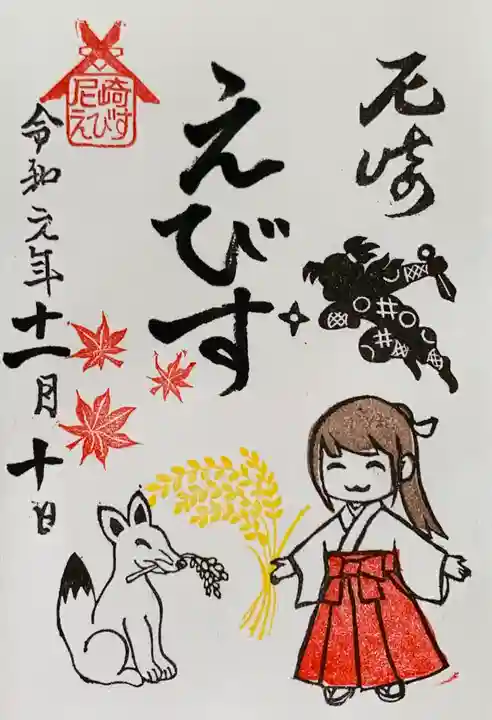 尼崎
えびす
尼崎
えびす
令和元年十一月十日